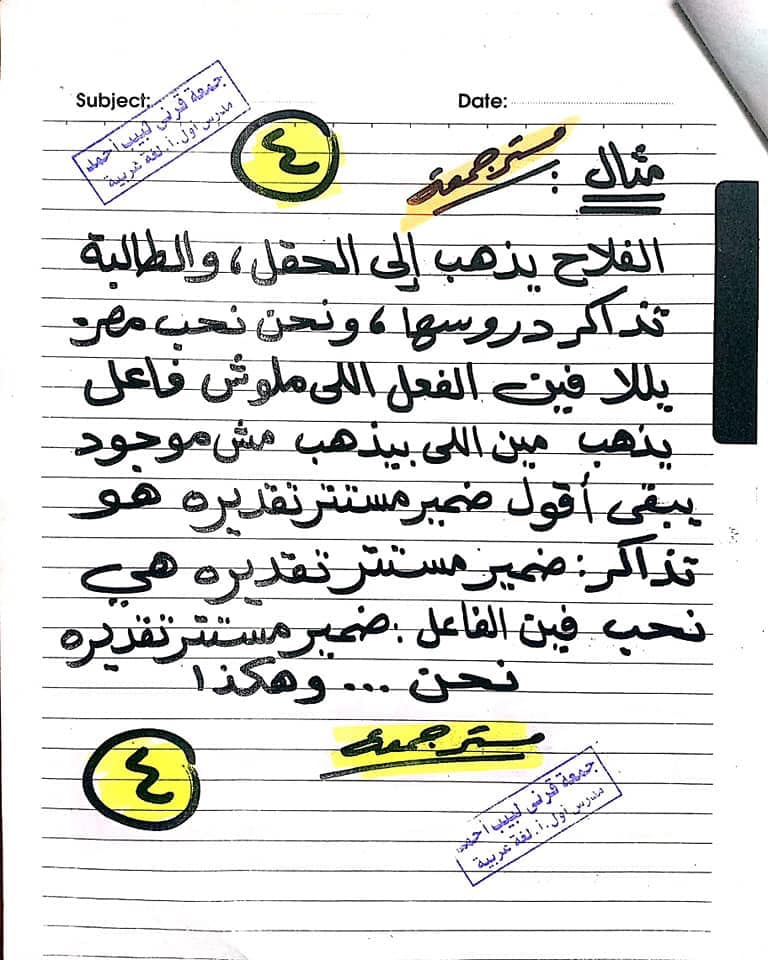 Subject:
Date:
جمعة قرنى لبيب أحمد
مدرس أول.أ.لغة عربية
٤
مستر جمعه
مثال :
الفلاح يذهب إلى الحقل، والطالبة
تذاكر دروسها، ونحن نحب مصر
يللا فين الفعل اللى ملوش فاعل
يذهب مين اللى بيذهب مش موجود
يبقى أقول ضمير مستتر تقديره هو
تذاكر: ضمير مستتر تقديره هي
نحب فين الفاعل : ضمير مستتر تقديره
نحن ... وهكذا
مستر جمعه
٤
جمعة قرنى لبيب أحمد
مدرس أول.أ.لغة عربية